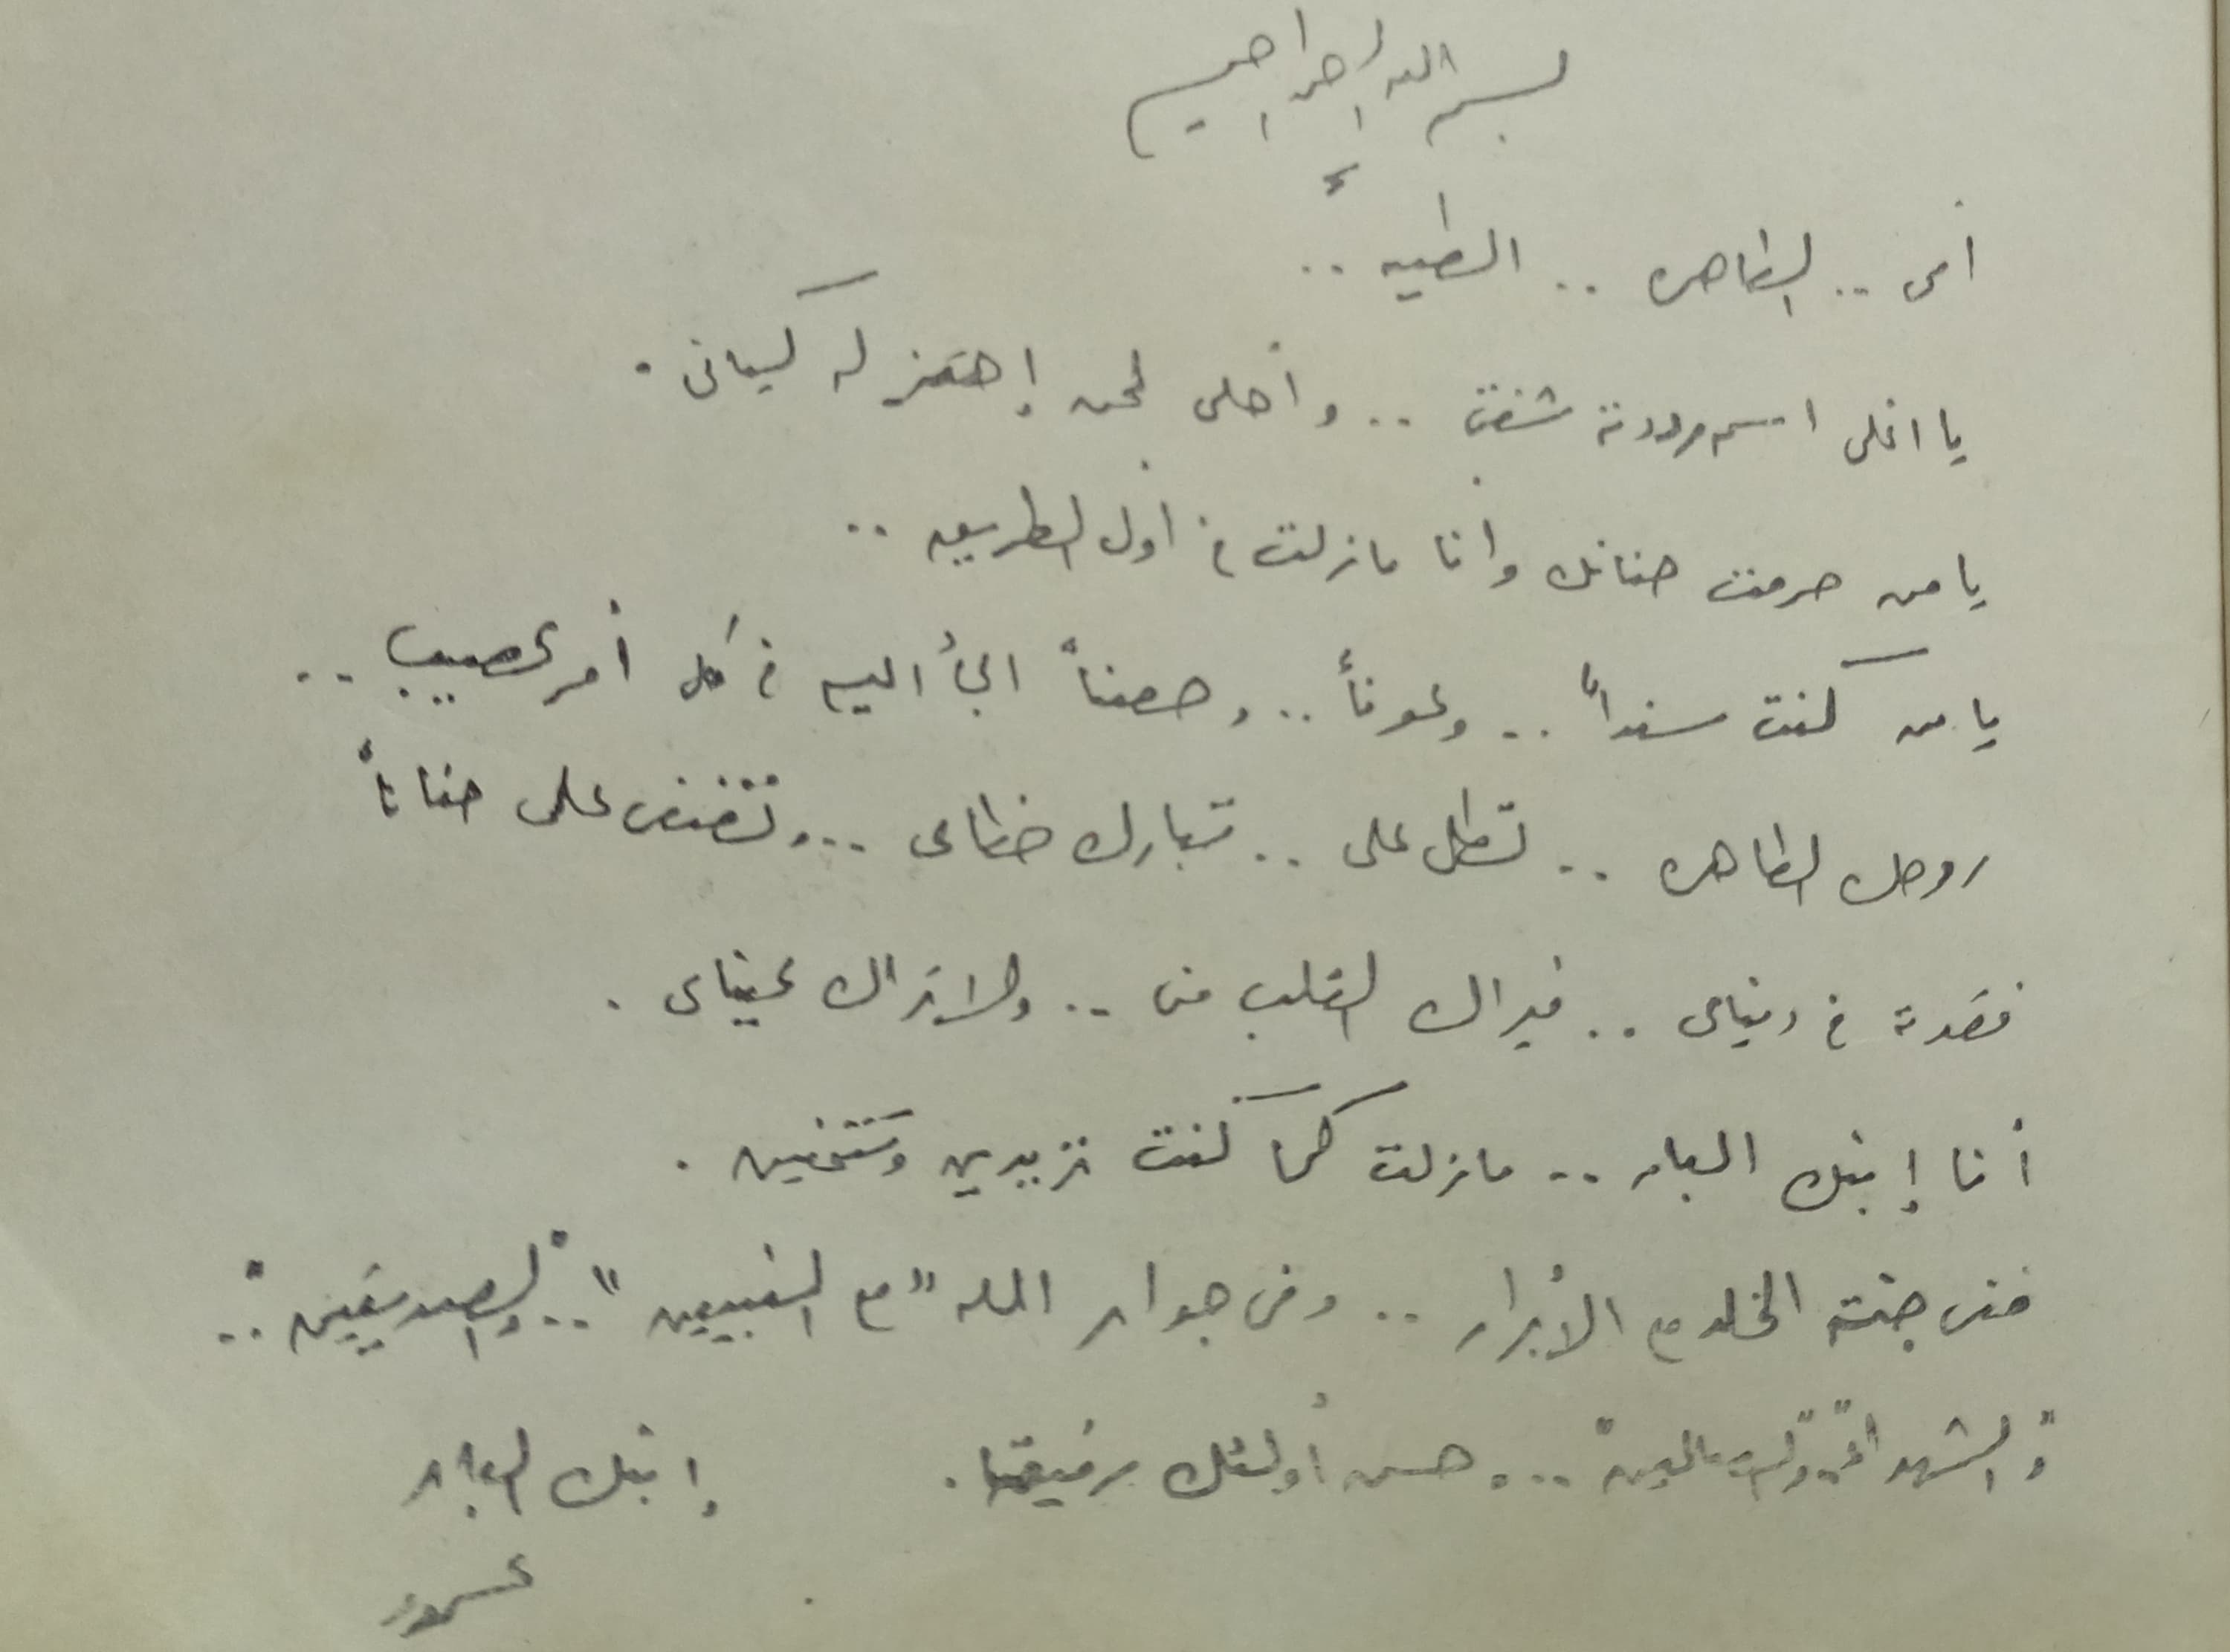 بسم الله الرحمن الرحيم
أمى .. الطاهره .. الطيبه ..
يا اغلى اسم رددته شفتى .. وأحلى لحن إهتز له كيانى .
يا من حرمت حنانك وانا مازلت فى اول الطريق ..
يا من كنت سنداً .. وعوناً .. وحصناً الجأ اليه فى كل أمر عصيب ..
روحك الطاهره .. تطل على .. تبارك خطاى ... وتفيض على حناناً
فقدته فى دنياى .. فيراك القلب منى .. ولا تراك عيناى .
أنا إبنك البار .. مازلت كما كنت تريدين وتتمنين .
فى جنة الخلد مع الأبرار .. وفى جوار الله "مع النبيين" .. "والصديقين" ..
"والشهداء" "والصالحين" ... وحسن أولئك رفيقا . إبنك البار